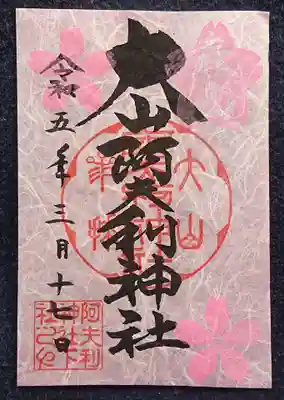 大山阿夫利神社
令和五年三月十七日
大山
阿夫利
神社下
社之印